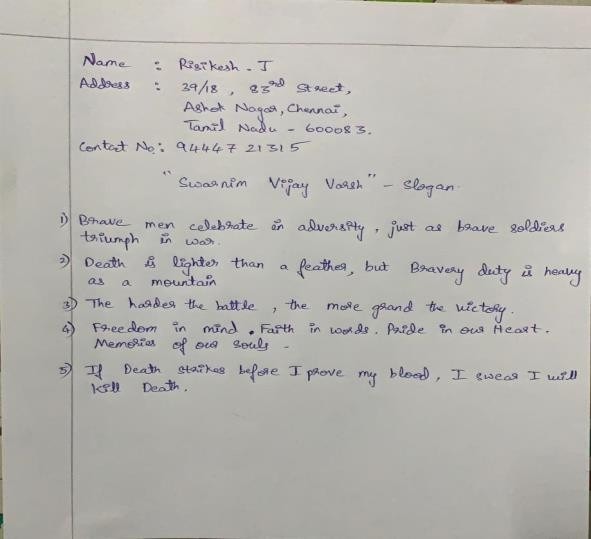 Name : Risikesh . J
Address : 39/18 , 83rd Street,
Ashok Nagar, Chennai,
Tamil Nadu - 600083.
Contact No: 94447 21315
"Swarnim Vijay Varsh" - Slogan.
1) Brave men celebrate in adversity, just as brave soldiers
triumph in war.
2) Death is lighter than a feather, but Bravery duty is heavy
as a mountain
3) The harder the battle , the more grand the victory.
4) Freedom in mind . Faith in words. Pride in our Heart.
Memories of our Souls -
5) If Death strikes before I prove my blood, I swear I will
Kill Death.